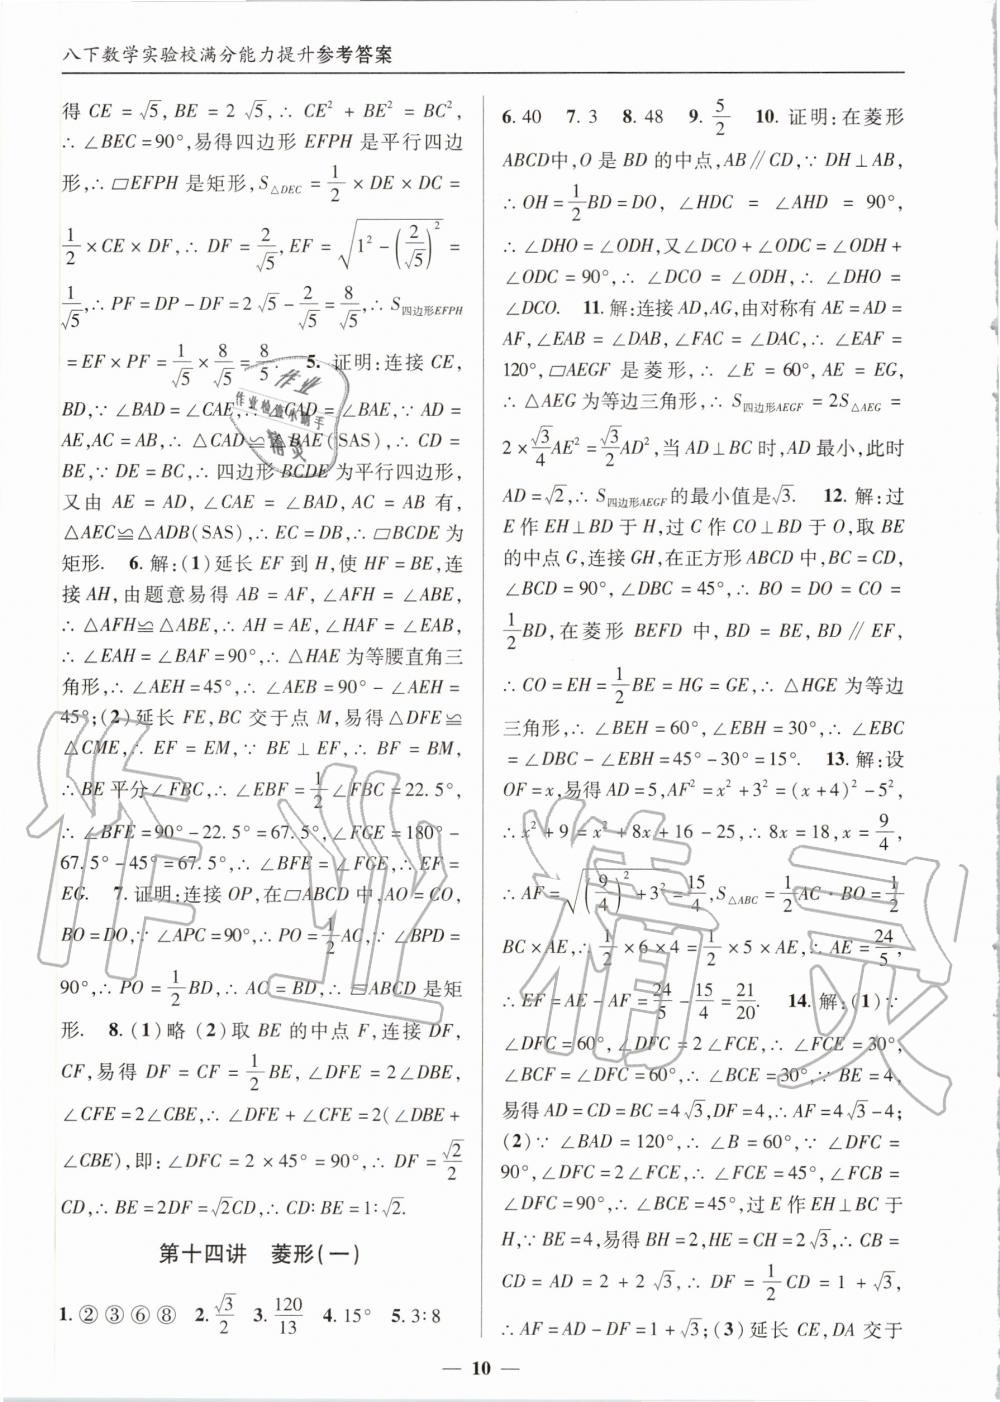 八下数学实验校满分能力提升参考答案
得 CE = √5, BE = 2 √5, ∴ CE² + BE² = BC²,
∴ ∠BEC = 90°, 易得四边形 EFPH 是平行四边
形, ∴ ▱EFPH 是矩形, S△DEC = 1/2 × DE × DC =
1/2 × CE × DF, ∴ DF = 2/√5, EF = √(1² − (2/√5)²) =
1/√5, ∴ PF = DP − DF = 2√5 − 2/√5 = 8/√5, ∴ S四边形EFPH
= EF × PF = 1/√5 × 8/√5 = 8/5. 5. 证明:连接 CE,
BD, ∵ ∠BAD = ∠CAE, ∴ ∠CAD = ∠BAE, ∵ AD =
AE, AC = AB, ∴ △CAD ≌ △BAE(SAS), ∴ CD =
BE, ∵ DE = BC, ∴ 四边形 BCDE 为平行四边形,
又由 AE = AD, ∠CAE = ∠BAD, AC = AB 有,
△AEC≌△ADB(SAS), ∴ EC = DB, ∴ ▱BCDE 为
矩形. 6. 解:(1)延长 EF 到 H, 使 HF = BE, 连
接 AH, 由题意易得 AB = AF, ∠AFH = ∠ABE,
∴ △AFH≌△ABE, ∴ AH = AE, ∠HAF = ∠EAB,
∴ ∠EAH = ∠BAF = 90°, ∴ △HAE 为等腰直角三
角形, ∴ ∠AEH = 45°, ∴ ∠AEB = 90° − ∠AEH =
45°; (2)延长 FE, BC 交于点 M, 易得 △DFE≌
△CME, ∴ EF = EM, ∵ BE ⊥ EF, ∴ BF = BM,
∴ BE 平分∠FBC, ∴ ∠EBF = 1/2∠FBC = 22.5°,
∴ ∠BFE = 90° − 22.5° = 67.5°, ∠FGE = 180° −
67.5° − 45° = 67.5°, ∴ ∠BFE = ∠FGE, ∴ EF =
EG. 7. 证明:连接 OP, 在▱ABCD 中, AO = CO,
BO = DO, ∵ ∠APC = 90°, ∴ PO = 1/2 AC, ∵ ∠BPD =
90°, ∴ PO = 1/2 BD, ∴ AC = BD, ∴ ▱ABCD 是矩
形. 8. (1)略 (2)取 BE 的中点 F, 连接 DF,
CF, 易得 DF = CF = 1/2 BE, ∠DFE = 2∠DBE,
∠CFE = 2∠CBE, ∴ ∠DFE + ∠CFE = 2(∠DBE +
∠CBE), 即: ∠DFC = 2 × 45° = 90°, ∴ DF = √2/2
CD, ∴ BE = 2DF = √2CD, ∴ CD∶BE = 1∶√2.
第十四讲 菱形(一)
1. ②③⑥⑧ 2. √3/2 3. 120/13 4. 15° 5. 3∶8
6. 40 7. 3 8. 48 9. 5/2 10. 证明:在菱形
ABCD中, O 是 BD 的中点, AB∥CD, ∵ DH⊥AB,
∴ OH = 1/2 BD = DO, ∠HDC = ∠AHD = 90°,
∴ ∠DHO = ∠ODH, 又∠DCO + ∠ODC = ∠ODH +
∠ODC = 90°, ∴ ∠DCO = ∠ODH, ∴ ∠DHO =
∠DCO. 11. 解:连接 AD, AG, 由对称有 AE = AD =
AF, ∠EAB = ∠DAB, ∠FAC = ∠DAC, ∴ ∠EAF =
120°, ▱AEGF 是菱形, ∴ ∠E = 60°, AE = EG,
∴ △AEG 为等边三角形, ∴ S四边形AEGF = 2S△AEG =
2 × √3/4 AE² = √3/2 AD², 当 AD⊥BC 时, AD 最小, 此时
AD = √2, ∴ S四边形AEGF的最小值是√3. 12. 解:过
E 作 EH⊥BD 于 H, 过 C 作 CO⊥BD 于 O, 取 BE
的中点 G, 连接 GH, 在正方形 ABCD 中, BC = CD,
∠BCD = 90°, ∠DBC = 45°, ∴ BO = DO = CO =
1/2 BD, 在菱形 BEFD 中, BD = BE, BD∥EF,
∴ CO = EH = 1/2 BE = HG = GE, ∴ △HGE 为等边
三角形, ∴ ∠BEH = 60°, ∠EBH = 30°, ∴ ∠EBC
= ∠DBC − ∠EBH = 45° − 30° = 15°. 13. 解:设
OF = x, 易得 AD = 5, AF² = x² + 3² = (x + 4)² − 5²,
∴ x² + 9 = x² + 8x + 16 − 25, ∴ 8x = 18, x = 9/4,
∴ AF = √((9/4)² + 3²) = 15/4, S△ABC = 1/2 AC · BO = 1/2
BC × AE, ∴ 1/2 × 6 × 4 = 1/2 × 5 × AE, ∴ AE = 24/5,
∴ EF = AE − AF = 24/5 − 15/4 = 21/20. 14. 解:(1) ∵
∠DFC = 60°, ∠DFC = 2∠FCE, ∴ ∠FCE = 30°,
∠BCF = ∠DFC = 60°, ∴ ∠BCE = 30°, ∵ BE = 4,
易得 AD = CD = BC = 4√3, DF = 4, ∴ AF = 4√3 − 4;
(2) ∵ ∠BAD = 120°, ∴ ∠B = 60°, ∵ ∠DFC =
90°, ∠DFC = 2∠FCE, ∴ ∠FCE = 45°, ∠FCB =
∠DFC = 90°, ∴ ∠BCE = 45°, 过 E 作 EH⊥BC 于
H, ∵ BE = 4, 易得 BH = 2, HE = CH = 2√3, ∴ CB =
CD = AD = 2 + 2√3, ∴ DF = 1/2 CD = 1 + √3,
∴ AF = AD − DF = 1 + √3; (3)延长 CE, DA 交于
— 10 —
作业
作业检查小帮手
精灵
作业精灵